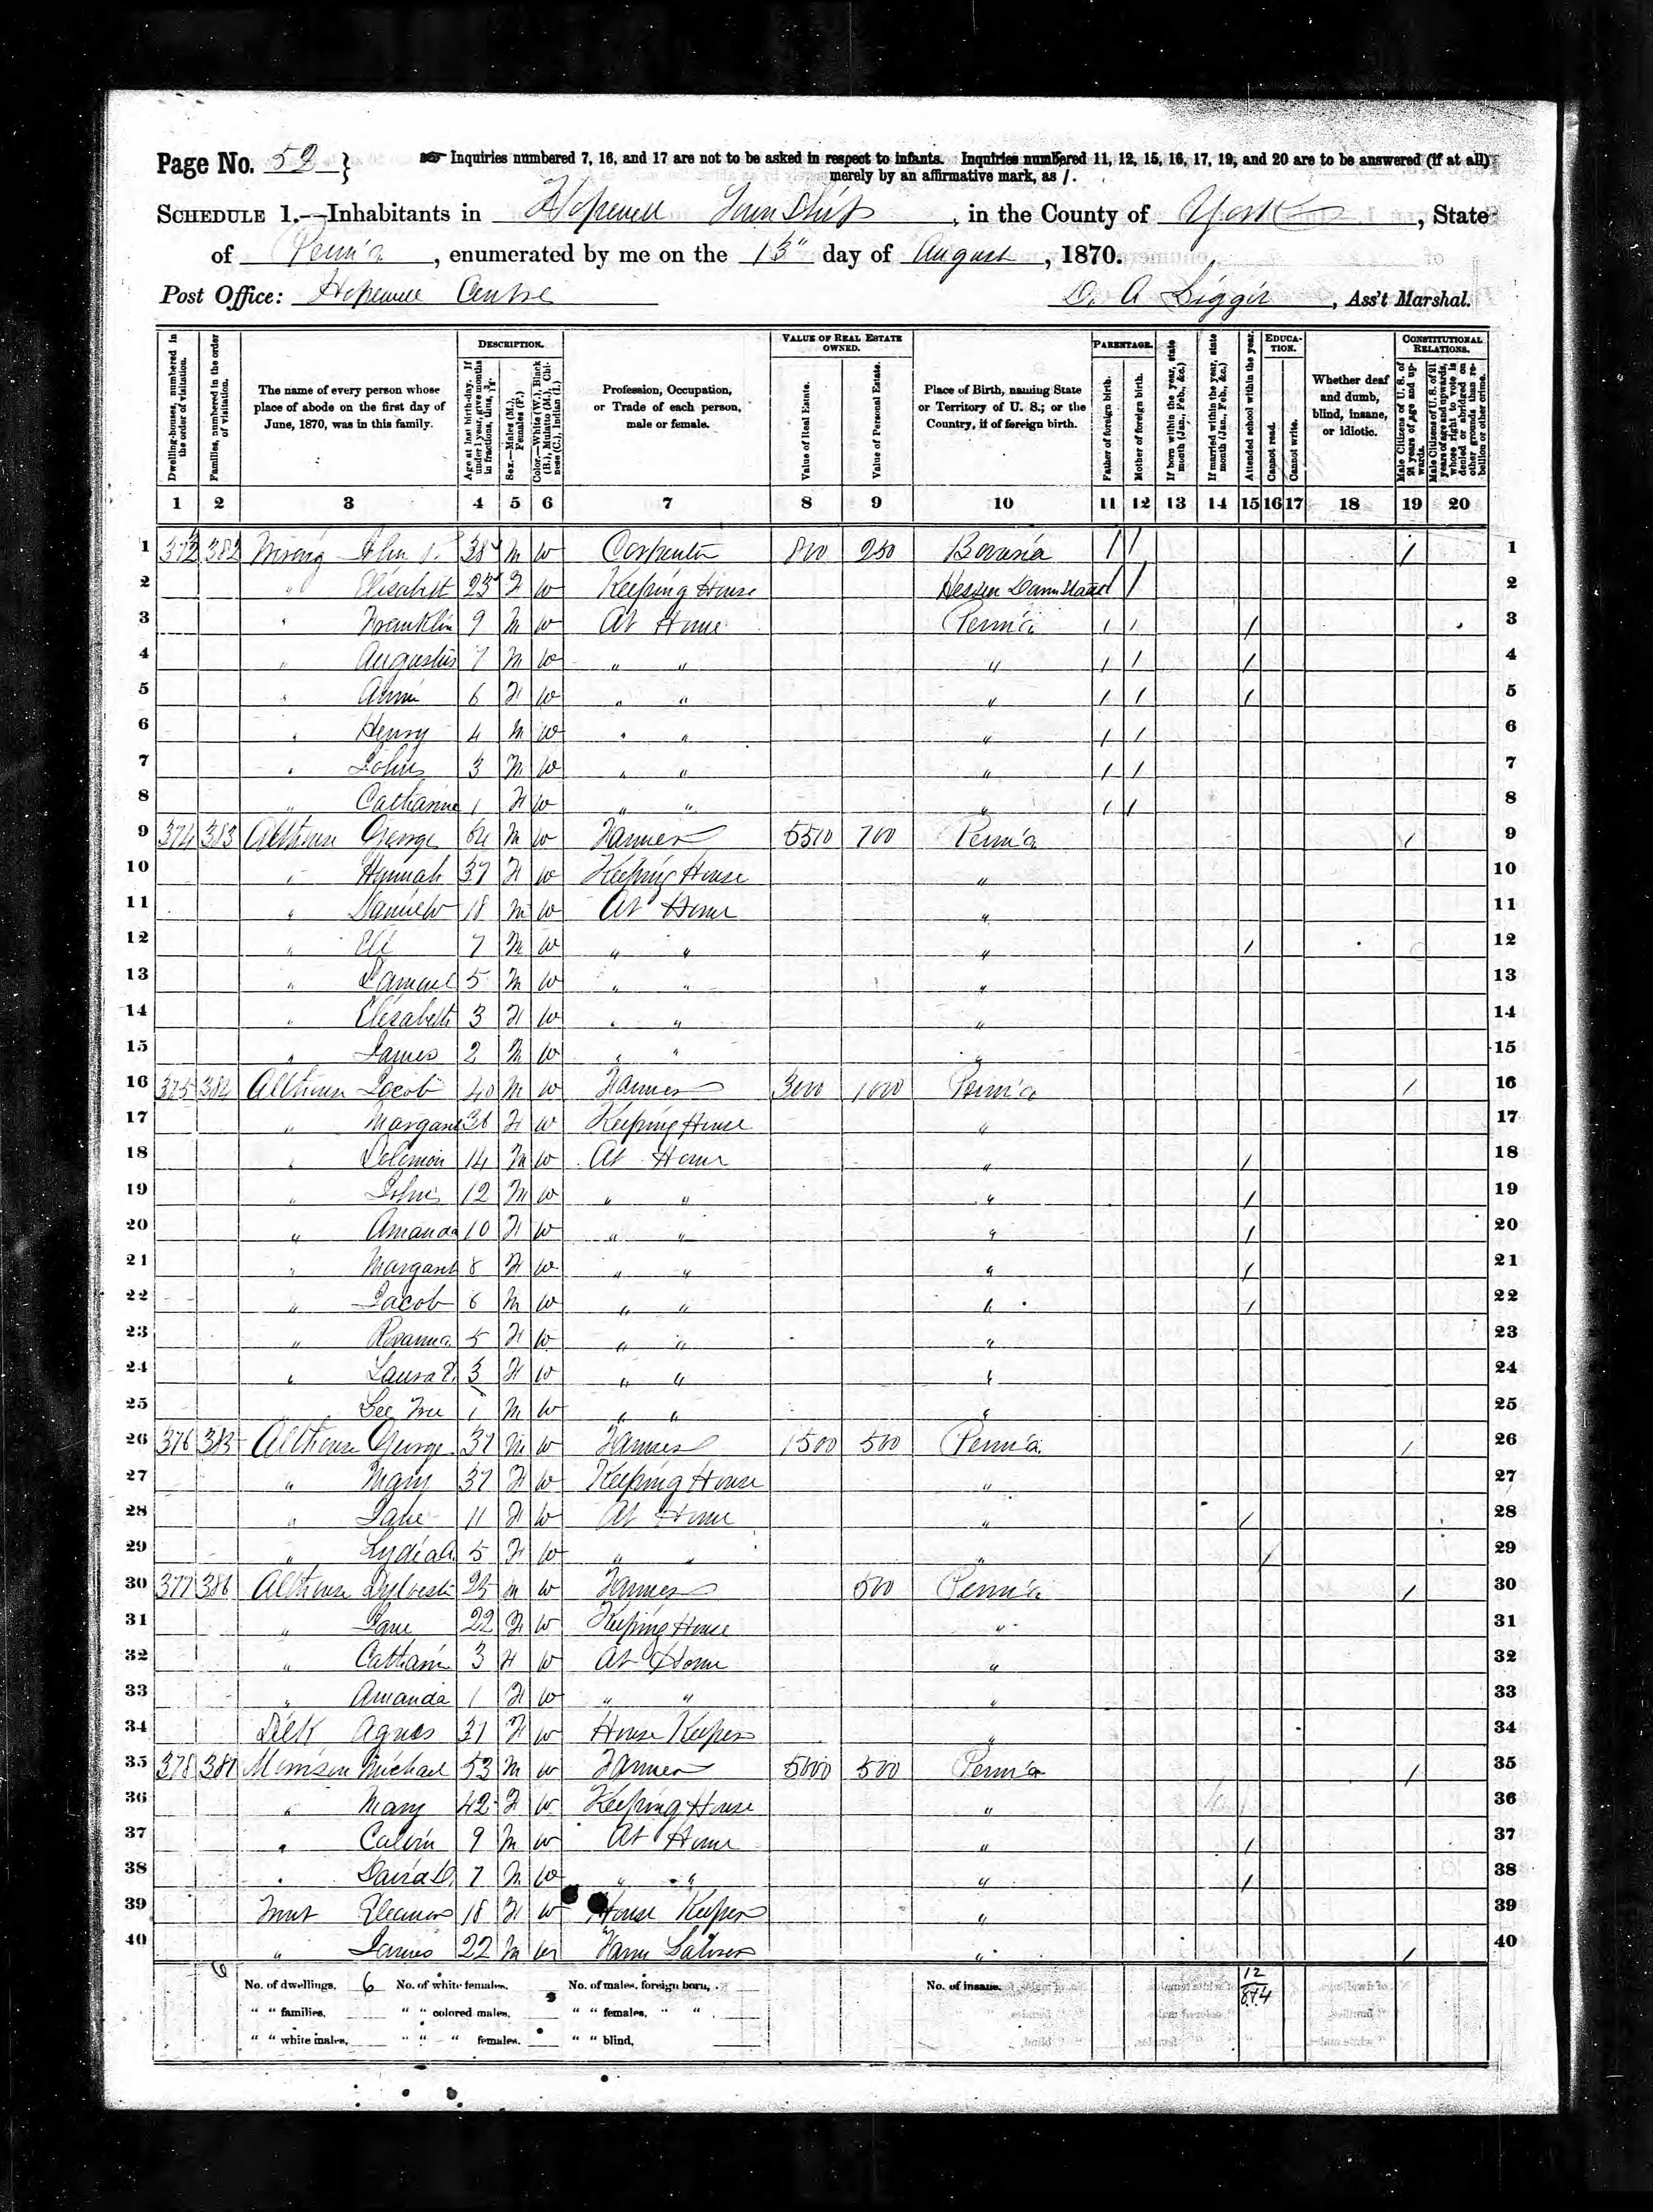 Page No. 52 }
Inquiries numbered 7, 16, and 17 are not to be asked in respect to infants. Inquiries numbered 11, 12, 15, 16, 17, 19, and 20 are to be answered (if at all)
merely by an affirmative mark, as /.
SCHEDULE 1.—Inhabitants in Hopewell Township, in the County of York, State
of Penn'a, enumerated by me on the 15" day of August, 1870.
Post Office: Hopewell Centre D. A. Ass't Marshal.
Dwelling-houses, numbered in the order of visitation.
Families, numbered in the order of visitation.
The name of every person whose place of abode on the first day of June, 1870, was in this family.
DESCRIPTION.
Age at last birth-day. If under 1 year, give months in fractions, thus,
Sex.—Males (M.), Females (F.)
Color.—White (W.), Black (B.), Mulatto (M.), Chinese (C.), Indian (I.)
Profession, Occupation, or Trade of each person, male or female.
VALUE OF REAL ESTATE OWNED.
Value of Real Estate.
Value of Personal Estate.
Place of Birth, naming State or Territory of U. S.; or the Country, if of foreign birth.
PARENTAGE.
Father of foreign birth.
Mother of foreign birth.
If born within the year, state month (Jan., Feb., &c.)
If married within the year, state month (Jan., Feb., &c.)
Attended school within the year.
EDUCATION.
Cannot read.
Cannot write.
Whether deaf and dumb, blind, insane, or idiotic.
CONSTITUTIONAL RELATIONS.
Male Citizens of U. S. of 21 years of age and upwards.
Male Citizens of U. S. of 21 years of age and upwards, whose right to vote is denied or abridged on other grounds than rebellion or other crime.
1 2 3 4 5 6 7 8 9 10 11 12 13 14 15 16 17 18 19 20
1 382 John 38 M W Carpenter 800 250 Bavaria / / / 1
2 " Elisabeth 23 F W Keeping House Hessen Darmstadt / / 2
3 " Franklin 9 M W At Home Penn'a / / / 3
4 " Augustus 7 M W " " " / / / 4
5 " 6 F W " " " / / / 5
6 " Henry 4 M W " " " / / 6
7 " John 3 M W " " " / / 7
8 " Catharine 1 F W " " " / / 8
9 374 383 Althouse George M W Farmer 5500 700 Penn'a / 9
10 " Hannah 37 F W Keeping House " 10
11 " 18 M W At Home " 11
12 " Eli 7 M W " " " / 12
13 " Samuel 5 M W " " " 13
14 " Elisabeth 3 F W " " " 14
15 " James 2 M W " " " 15
16 375 384 Althouse Jacob 40 M W Farmer 3000 1000 Penn'a / 16
17 " Margaret 36 F W Keeping House " 17
18 " Solomon 14 M W At Home " / 18
19 " John 12 M W " " " / 19
20 " Amanda 10 F W " " " / 20
21 " Margaret 8 F W " " " / 21
22 " Jacob 6 M W " " " / 22
23 " Rosanna 5 F W " " " 23
24 " Laura 3 F W " " " 24
25 " 1 M W " " " 25
26 376 385 Althouse George 37 M W Farmer 1500 500 Penn'a / 26
27 " Mary 37 F W Keeping House " 27
28 " Jane 11 F W At Home " / 28
29 " Lydia A. 5 F W " " " / 29
30 377 386 Althouse Sylvester 25 M W Farmer 500 Penn'a / 30
31 " Jane 22 F W Keeping House " 31
32 " Catharin 3 F W At Home " 32
33 " Amanda 1 F W " " " 33
34 Agnes 31 F W House Keeper " 34
35 378 387 Michael 53 M W Farmer 5000 500 Penn'a / 35
36 " Mary 42 F W Keeping House " 36
37 " Calvin 9 M W At Home " / 37
38 " David 7 M W " " " / 38
39 Eleanor 18 F W House Keeper " 39
40 " James 22 M W Farm Laborer " / 40
No. of dwellings, 6 No. of white females, No. of males, foreign born, No. of insane, 12
" " families, " " colored males, " " females, " " 874
" " white males, " " " females, " " blind,